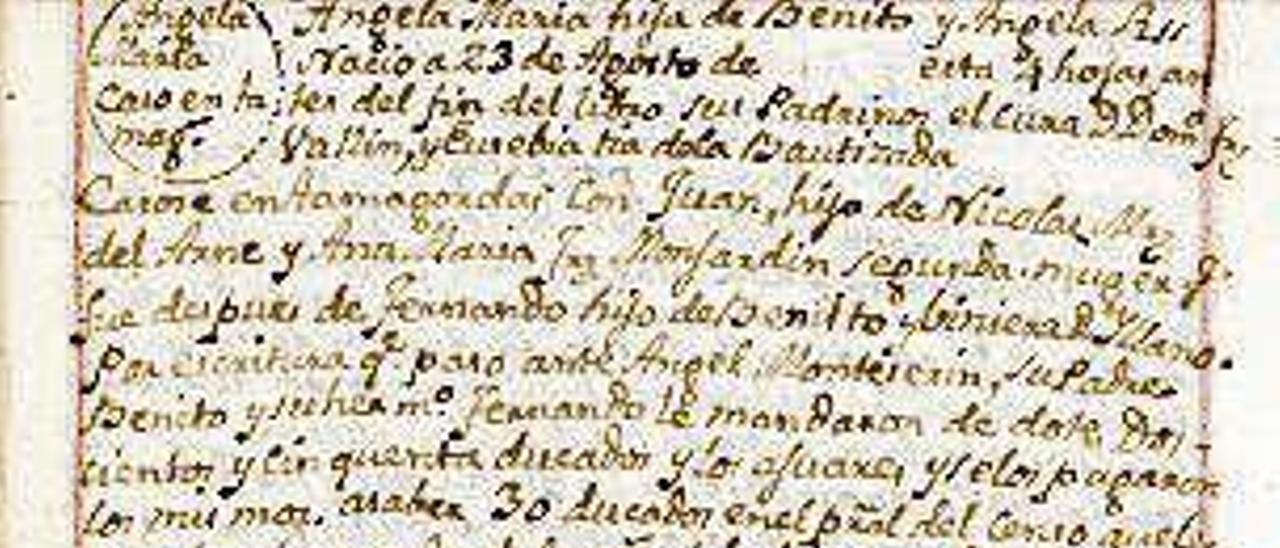 Angela Angela Maria hija de Benito y Angela
Maria Nacio a 23 de Agosto de esta 4 hojas an
Caso en ta tes del fin del libro sus Padrinos el cura D Dom.º
mag.s Vallin, y Eusebia tia dela Bautizada
Casose en tamagordas Con Juan, hijo de Nicolas Mrz
del Arne y Ana Maria Frz Monjardin segunda muger q.
fue despues de Fernando hijo de Benitto y
Por escritura q.e paso ante Angel Monteserin, su Padre
Benito y su herm.º Fernando le mandaron de dote Dos-
cientos y cinquenta ducados y los ajuares, y selos pagaron
los mismos. asaber 30 ducados en el pral del Censo